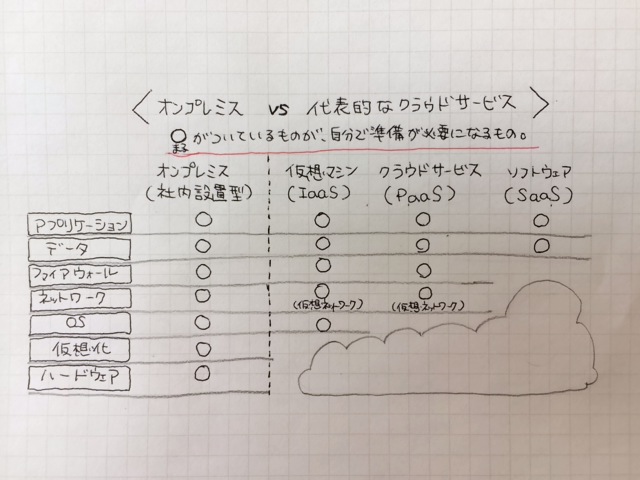 〈 オンプレミス vs 代表的なクラウドサービス 〉
○がついているものが、自分で準備が必要になるもの。
まる
オンプレミス 仮想マシン クラウドサービス ソフトウェア
(社内設置型) (IaaS) (PaaS) (SaaS)
アプリケーション ○ ○ ○ ○
データ ○ ○ ○ ○
ファイアウォール ○ ○ ○
ネットワーク ○ ○ ○
(仮想ネットワーク) (仮想ネットワーク)
OS ○ ○
仮想化 ○
ハードウェア ○